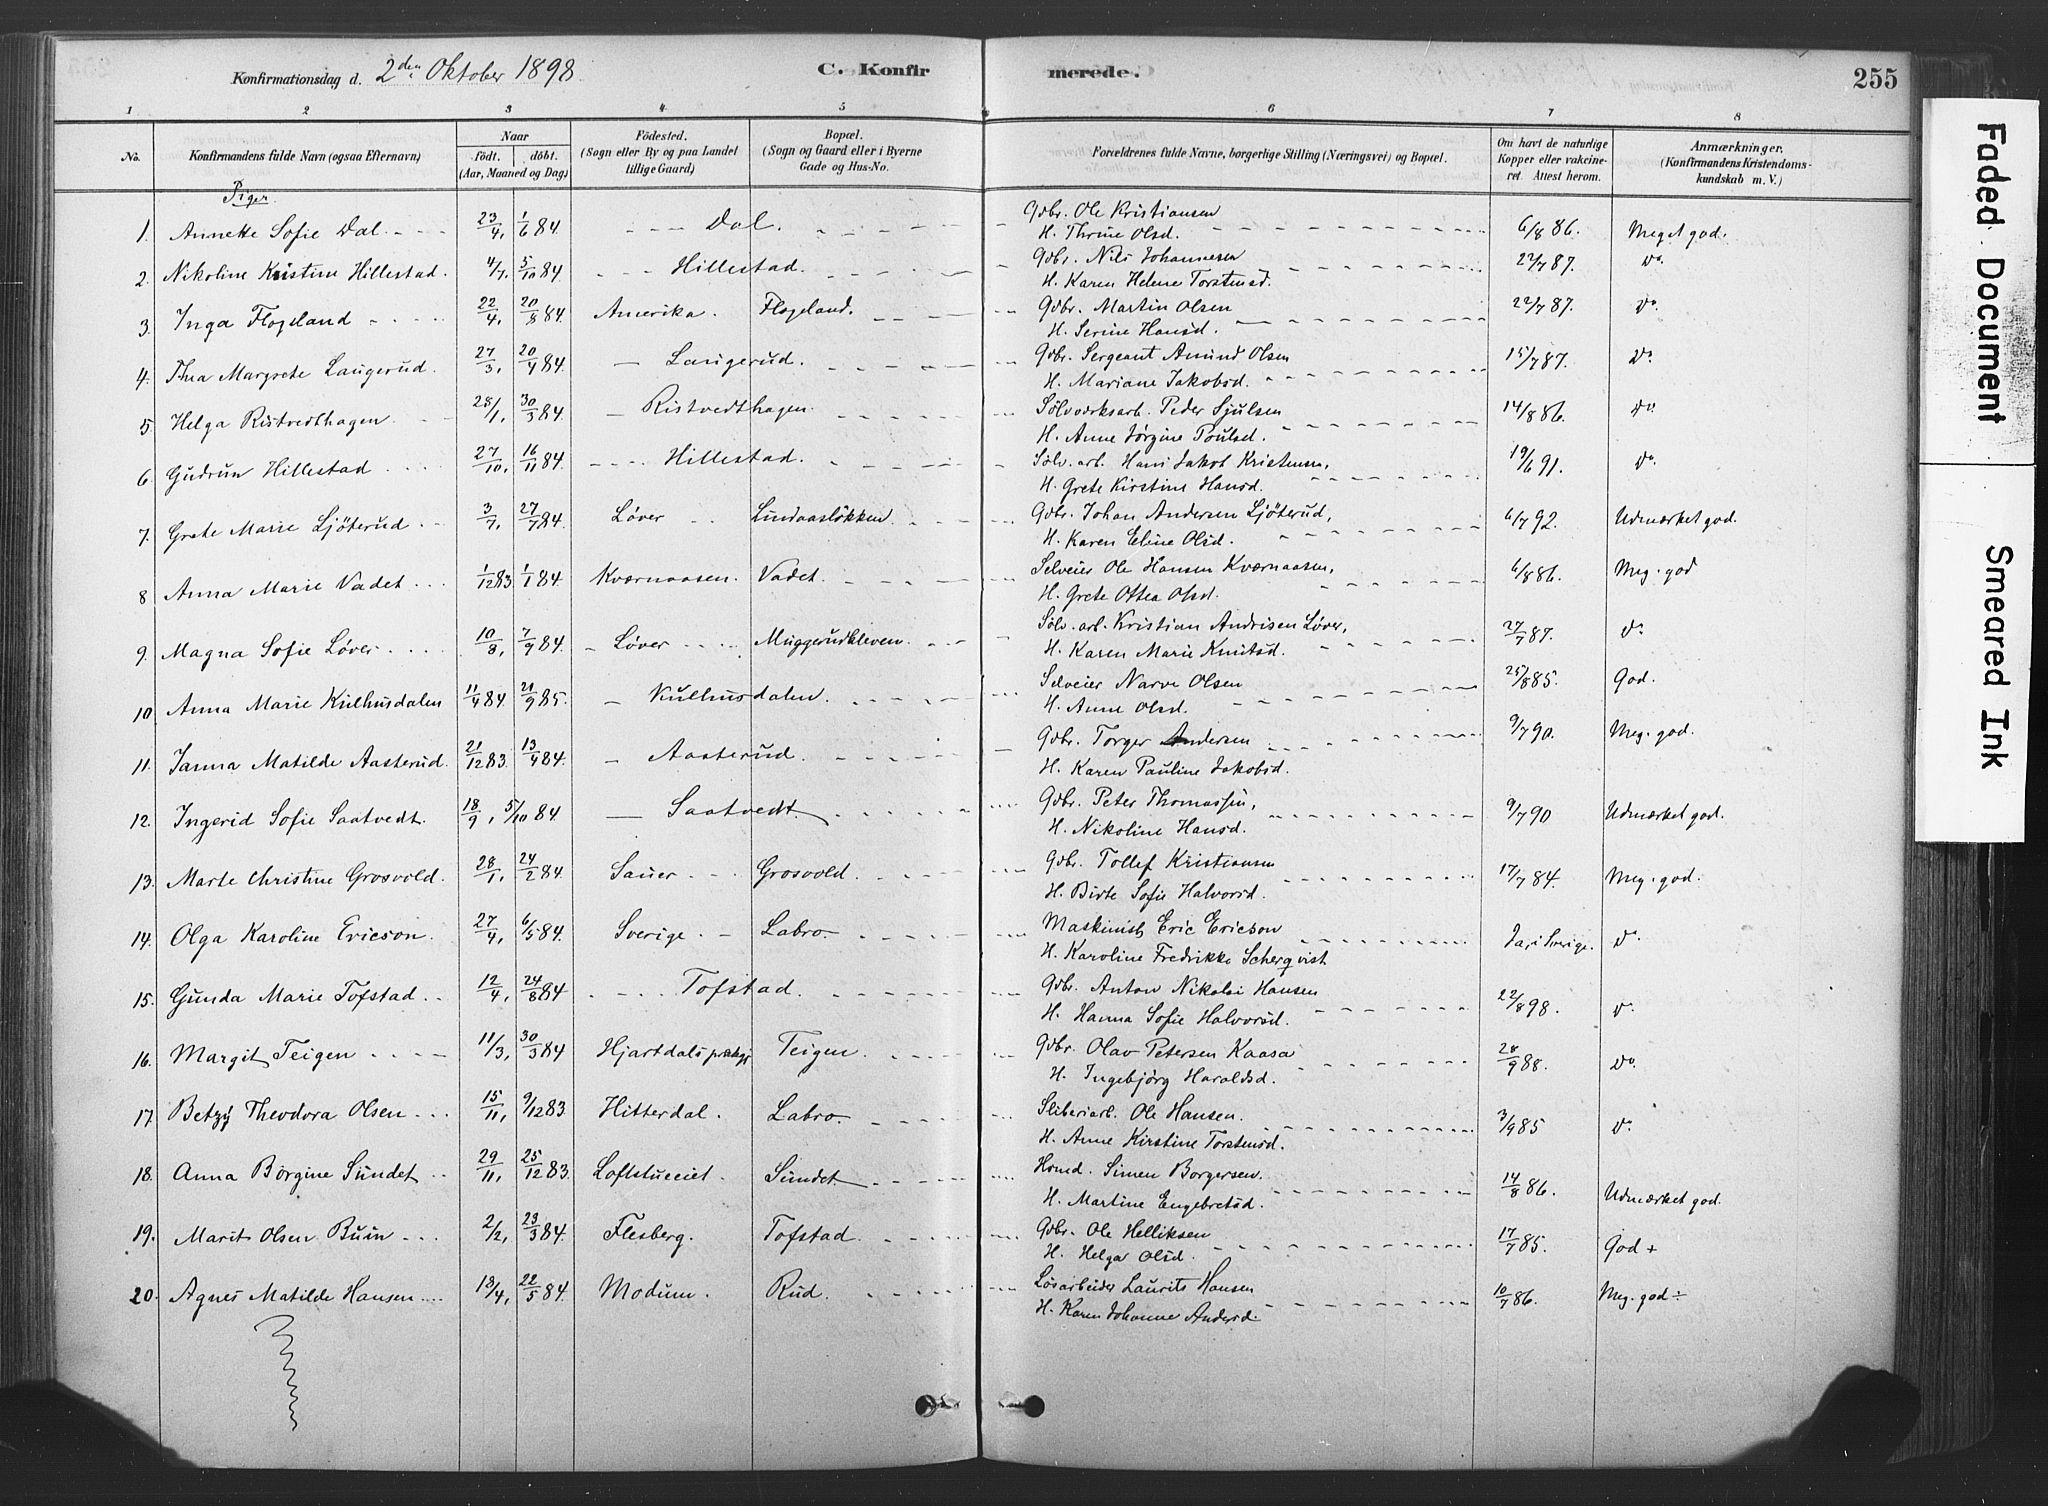 Konfirmationsdag d. 2den Oktober 1898 C. Konfirmerede. 255
1 2 3 4 5 6 7 8
No. Konfirmandens fulde Navn (ogsaa Efternavn) Naar født. døbt. (Aar, Maaned og Dag) Fødested. (Sogn eller By og paa Landet tillige Gaard) Bopæl. (Sogn og Gaard eller i Byerne Gade og Hus-No. Forældrenes fulde Navne, borgerlige Stilling (Næringsvei) og Bopæl. Om havt de naturlige Kopper eller vakcineret. Attest herom. Anmærkninger, (Konfirmandens Kristendomskundskab m. V.)
Piger
1. Annette Sofie Dal 23/4, 1/6 84. Dal. Gdbr. Ole Kristiansen 6/8 86. Meget god.
H. Thrine Olsd.
2. Nikoline Kristine Hillestad. 4/7, 5/10 84. Hillestad. Gdbr. Nils Johannesen 22/7 87. do.
H. Karen Helene Torstensd.
3. Inga Flogeland 22/4, 20/8 84. Amerika. Flogeland. Gdbr. Martin Olsen 22/7 87. do.
H. Serine Hansd.
4. Thea Margrete Laugerud. 27/3, 20/4 84. Laugerud. Gdbr. Sergeant Amund Olsen 15/7 87. do.
H. Mariane Jakobsd.
5. Helga Ristvedthagen. 28/1, 30/3 84. Ristvedthagen. Sølvværksarb. Peder Sjulsen 14/8 86. do.
H. Anne Jørgine Poulsd.
6. Gudrun Hillestad 27/10, 16/11 84. Hillestad. Sølv. arb. Hans Jakob Kristensen, 19/6 91. do.
H. Grete Kirstine Hansd.
7. Grete Marie Ljöterud 3/7, 27/7 84. Løver Lindaasløkken Gdbr. Johan Andersen Ljöterud, 6/7 92. Udmærket god.
H. Karen Eline Olsd.
8. Anna Marie Vadet 1/12 83 1/1 84. Kværnaasen. Vadet. Selveier Ole Hansen Kværnaasen, 6/8 86. Meg. god
H. Grete Oftea Olsd.
9. Magna Sofie Løver 10/8, 7/9 84. Løver Muggerudkleven. Sølv. arb. Kristian Andrisen Løver, 27/7 87. do.
H. Karen Marie Knutsd.
10. Anna Marie Kulhusdalen 11/4 84. 21/9 85. Kulhusdalen. Selveier Narve Olsen 25/8 85. God.
H. Anne Olsd.
11. Janna Matilde Aasterud. 21/12 83. 13/4 84. Aasterud. Gdbr. Torger Andersen 9/7 90. Meg. god.
H. Karen Pauline Jakobsd.
12. Ingerid Sofie Saatvedt. 18/9, 5/10 84 Saatvedt. Gdbr. Peter Thomassen, 9/7 90 Udmærket god.
H. Nikoline Hansd.
13. Marte Christine Grosvold. 28/1, 24/2 84. Sauer Grosvold. Gdbr. Tollef Kristiansen 17/7 84. Meg. god.
H. Birte Sofie Halvorsd.
14. Olga Karoline Ericson. 27/4, 6/5 84. Sverige. Labro. Maskinist Eric Ericson Ja, i Sverige. do.
H. Karoline Fredrikke Scherqvist
15. Gunda Marie Tofstad 12/4, 24/8 84 Tofstad. Gdbr. Anton Nikolai Hansen 22/8 98. do.
H. Hanna Sofie Halvorsd.
16. Margit Teigen 11/3, 30/3 84 Hjartdals Teigen Gdbr. Olav Petersen Kaasa 28/9 88. do.
H. Ingebjørg Haraldsd.
17. Betzy Theodora Olsen 15/11, 9/12 83 Hitterdal. Labro. Sliberiarb. Ole Hansen. 3/9 85 do.
H. Anne Kirstine Torstensd.
18. Anna Börgine Sundet 29/11, 25/12 83. Loftstueeiet Sundet Hsmd. Simen Borgersen 14/8 86. Udmærket god.
H. Martine Engebretsd.
19. Marit Olsen Buin 2/2, 23/3 84. Flesberg. Tofstad Gdbr. Ole Helliksen 17/7 85. God +
H. Helga Olsd.
20. Agnes Matilde Hansen 13/4, 22/5 84. Modum. Rud. Løsarbeider Laurits Hansen 10/7 86. Meg. god ÷
H. Karen Johanne Andersd.
Faded Document Smeared Ink